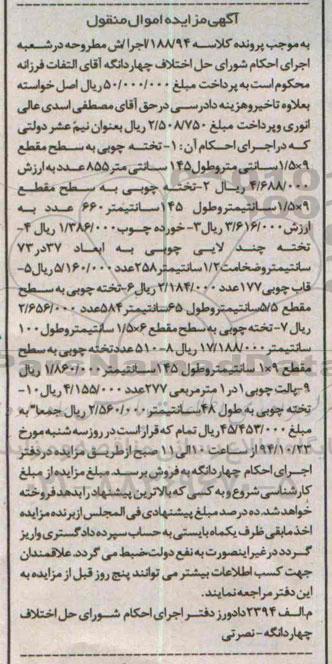 آگهی مزایده اموال منقول
به موجب پرونده کلاسه ۱۸۸/۹۴/اجرا/ش مطروحه در شعبه
اجرای احکام شورای حل اختلاف چهاردانگه آقای التفات فرزانه
محکوم است به پرداخت مبلغ ۵۰/۰۰۰/۰۰۰ ریال اصل خواسته
بعلاوه تاخیر و هزینه دادرسی در حق آقای مصطفی اسدی عالی
انوری و پرداخت مبلغ ۲/۵۰۸/۷۵۰ ریال بعنوان نیم عشر دولتی
که در اجرای احکام آن: ۱- تخته چوبی به سطح مقطع
۹×۱/۵ سانتی متر وطول ۱۴۵ سانتی متر ۸۵۵ عدد به ارزش
۴/۶۸۸/۰۰۰ ریال ۲- تخته چوبی به سطح مقطع
۹×۱/۵ سانتیمتر وطول ۱۴۵ سانتیمتر ۶۶۰ عدد به
ارزش ۳/۶۱۶/۰۰۰ ریال ۳- خورده چوب ۱/۳۸۶/۰۰۰ ریال ۴-
تخته چند لایی چوبی به ابعاد ۳۷ در ۷۳
سانتیمتر وضخامت ۱/۲ سانتیمتر ۲۵۸ عدد ۵/۱۶۰/۰۰۰ ریال ۵-
قاب چوبی ۱۷۷ عدد ۲/۱۸۴/۰۰۰ ریال ۶- تخته چوبی به سطح
مقطع ۵/۵ سانتیمتر وطول ۶۵ سانتیمتر ۵۸۴ عدد ۲/۶۵۶/۰۰۰
ریال ۷- تخته چوبی به سطح مقطع ۶×۱/۵ سانتیمتر وطول ۱۰۰
سانتیمتر ۱۷/۱۸۸/۰۰۰ ریال ۸- ۵۱۰ عدد تخته چوبی به سطح
مقطع ۹×۱ سانتیمتر وطول ۱۴۵ سانتیمتر ۱/۸۶۰/۰۰۰ ریال
۹- پالت چوبی ۱ در ۱ متر مربعی ۲۷۷ عدد ۴/۱۵۵/۰۰۰ ریال ۱۰-
تخته چوبی به طول ۴۸ سانتیمتر ۲/۵۶۰/۰۰۰ ریال جمعا" به
مبلغ ۴۵/۴۵۳/۰۰۰ ریال تمام که قرار است در روز سه شنبه مورخ
۹۴/۱۰/۲۲ از ساعت ۱۰ الی ۱۱ صبح از طریق مزایده در دفتر
اجرای احکام چهاردانگه به فروش برسد. مبلغ مزایده از مبلغ
کارشناسی شروع و به کسی که بالاترین پیشنهاد را بدهد فروخته
خواهد شد. ده درصد مبلغ پیشنهادی فی المجلس از برنده مزایده
اخذ مابقی ظرف یکماه بایستی به حساب سپرده دادگستری واریز
گردد در غیر اینصورت به نفع دولت ضبط می گردد. علاقمندان
جهت کسب اطلاعات بیشتر می توانند پنج روز قبل از مزایده به
این دفتر مراجعه نمایند.
م الف ۲۳۹۴ دادورز دفتر اجرای احکام شورای حل اختلاف
چهاردانگه - نصرتی